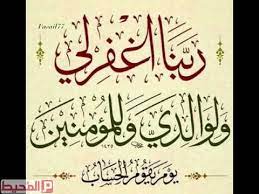 ربنا اغفر لي
ولوالدي وللمؤمنين
يوم يقوم الحساب
المحيط